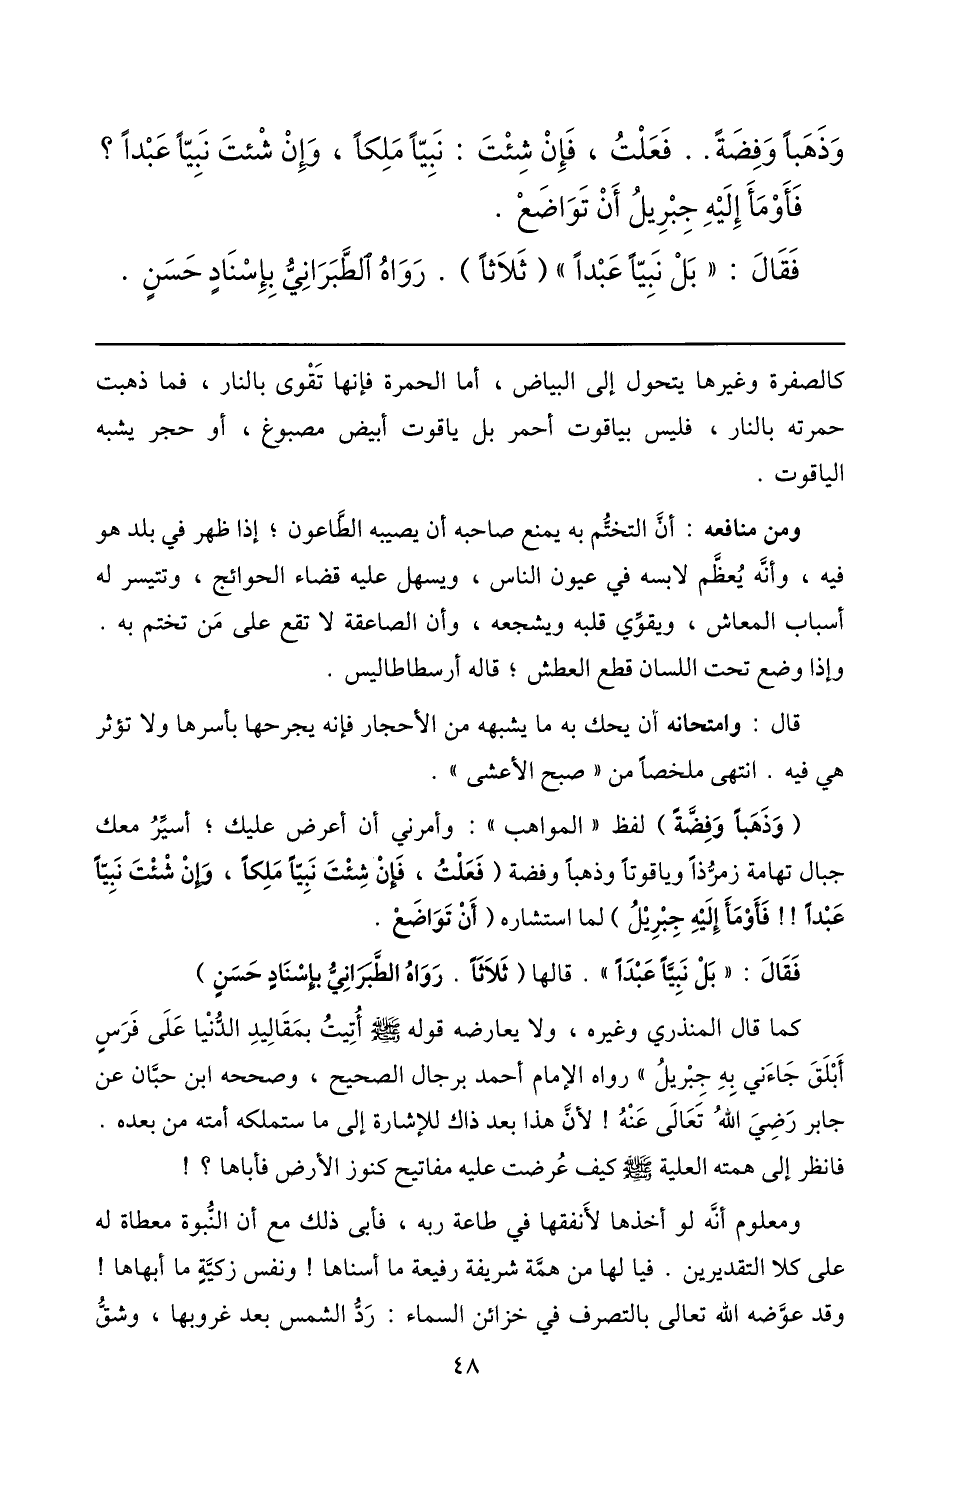 وَذَهَباً وَفِضَةً . . فَعَلْتُ ، فَإِنْ شِئْتَ : نَبِيّاً مَلِكاً ، وَإِنْ شْئتَ نَبِيّاً عَبْداً ؟
فَأَوْمَأَ إِلَيْهِ جِبْرِيلُ أَنْ تَوَاضَعْ .
فَقَالَ : « بَلْ نَبِيّاً عَبْداً » ( ثَلاَثاً ) . رَوَاهُ ٱلطَّبَرَانِيُّ بِإِسْنَادٍ حَسَنٍ .
كالصفرة وغيرها يتحول إلى البياض ، أما الحمرة فإنها تَقْوى بالنار ، فما ذهبت
حمرته بالنار ، فليس بياقوت أحمر بل ياقوت أبيض مصبوغ ، أو حجر يشبه
الياقوت .
ومن منافعه : أنَّ التختُّم به يمنع صاحبه أن يصيبه الطَّاعون ؛ إذا ظهر في بلد هو
فيه ، وأنَّه يُعظَّم لابسه في عيون الناس ، ويسهل عليه قضاء الحوائج ، وتتيسر له
أسباب المعاش ، ويقوِّي قلبه ويشجعه ، وأن الصاعقة لا تقع على مَن تختم به .
وإذا وضع تحت اللسان قطع العطش ؛ قاله أرسطاطاليس .
قال : وامتحانه أن يحك به ما يشبهه من الأحجار فإنه يجرحها بأسرها ولا تؤثر
هي فيه . انتهى ملخصاً من « صبح الأعشى » .
( وَذَهَباً وَفِضَّةً ) لفظ « المواهب » : وأمرني أن أعرض عليك ؛ أسيِّرُ معك
جبال تهامة زمرُّذاً وياقوتاً وذهباً وفضة ( فَعَلْتُ ، فَإِنْ شِئْتَ نَبِيّاً مَلِكاً ، وَإِنْ شْئْتَ نَبِيّاً
عَبْداً !! فَأَوْمَأَ إِلَيْهِ جِبْرِيْلُ ) لما استشاره ( أَنْ تَوَاضَعْ .
فَقَالَ : « بَلْ نَبِيَّاً عَبْدَاً » . قالها ( ثَلَاثَاً . رَوَاهُ الطَّبَرَانِيُّ بِإِسْنَادٍ حَسَنٍ )
كما قال المنذري وغيره ، ولا يعارضه قوله ﷺ أُتِيتُ بِمَقَالِيدِ الدُّنْيا عَلَى فَرَسٍ
أَبْلَقَ جَاءَني بِهِ جِبْرِيلُ » رواه الإمام أحمد برجال الصحيح ، وصححه ابن حبَّان عن
جابر رَضِيَ اللهُ تَعَالَى عَنْهُ ! لأنَّ هذا بعد ذاك للإشارة إلى ما ستملكه أمته من بعده .
فانظر إلى همته العلية ﷺ كيف عُرضت عليه مفاتيح كنوز الأرض فأباها ؟ !
ومعلوم أنَّه لو أخذها لأَنفقها في طاعة ربه ، فأبى ذلك مع أن النُّبوة معطاة له
على كلا التقديرين . فيا لها من همَّة شريفة رفيعة ما أسناها ! ونفس زكيَّةٍ ما أبهاها !
وقد عوَّضه الله تعالى بالتصرف في خزائن السماء : رَدُّ الشمس بعد غروبها ، وشقُّ
٤٨